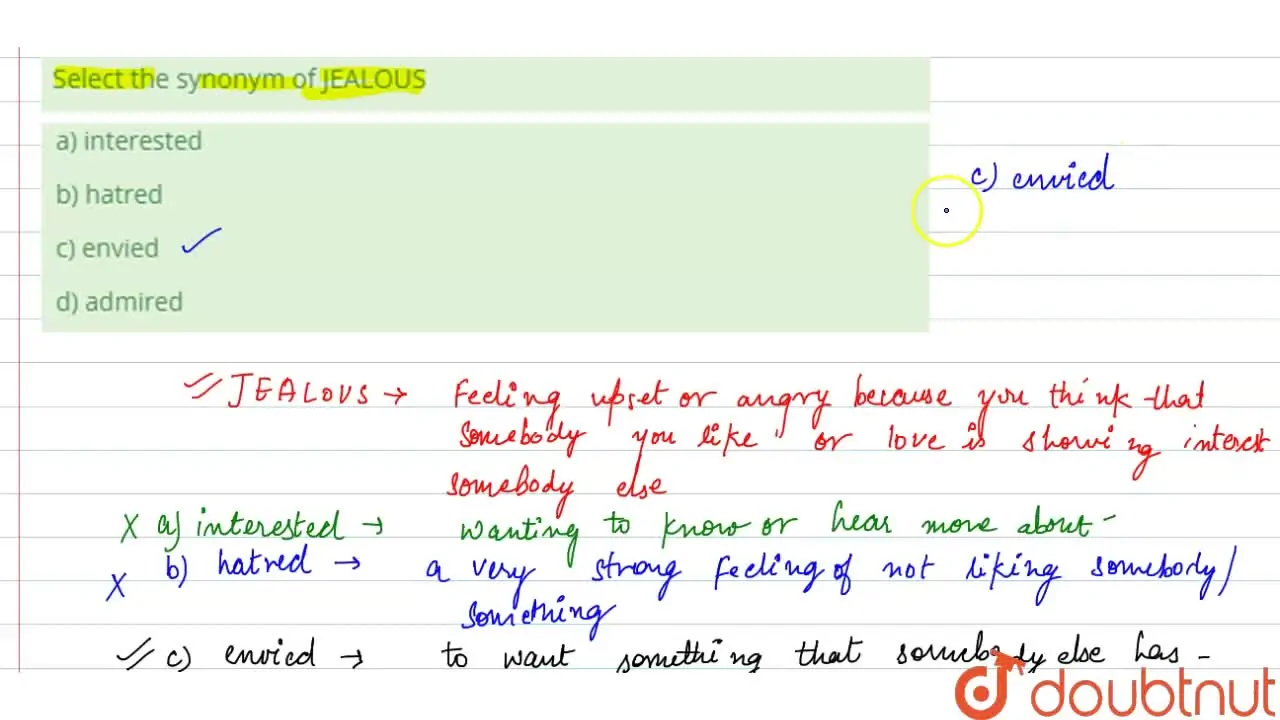 Select the synonym of JEALOUS
a) interested
b) hatred
c) envied
d) admired
c) envied
JEALOUS → Feeling upset or angry because you think that
somebody you like or love is showing interest
somebody else
X a) interested → wanting to know or hear more about-
X b) hatred → a very strong feeling of not liking somebody/
something
c) envied → to want something that somebody else has -
doubtnut